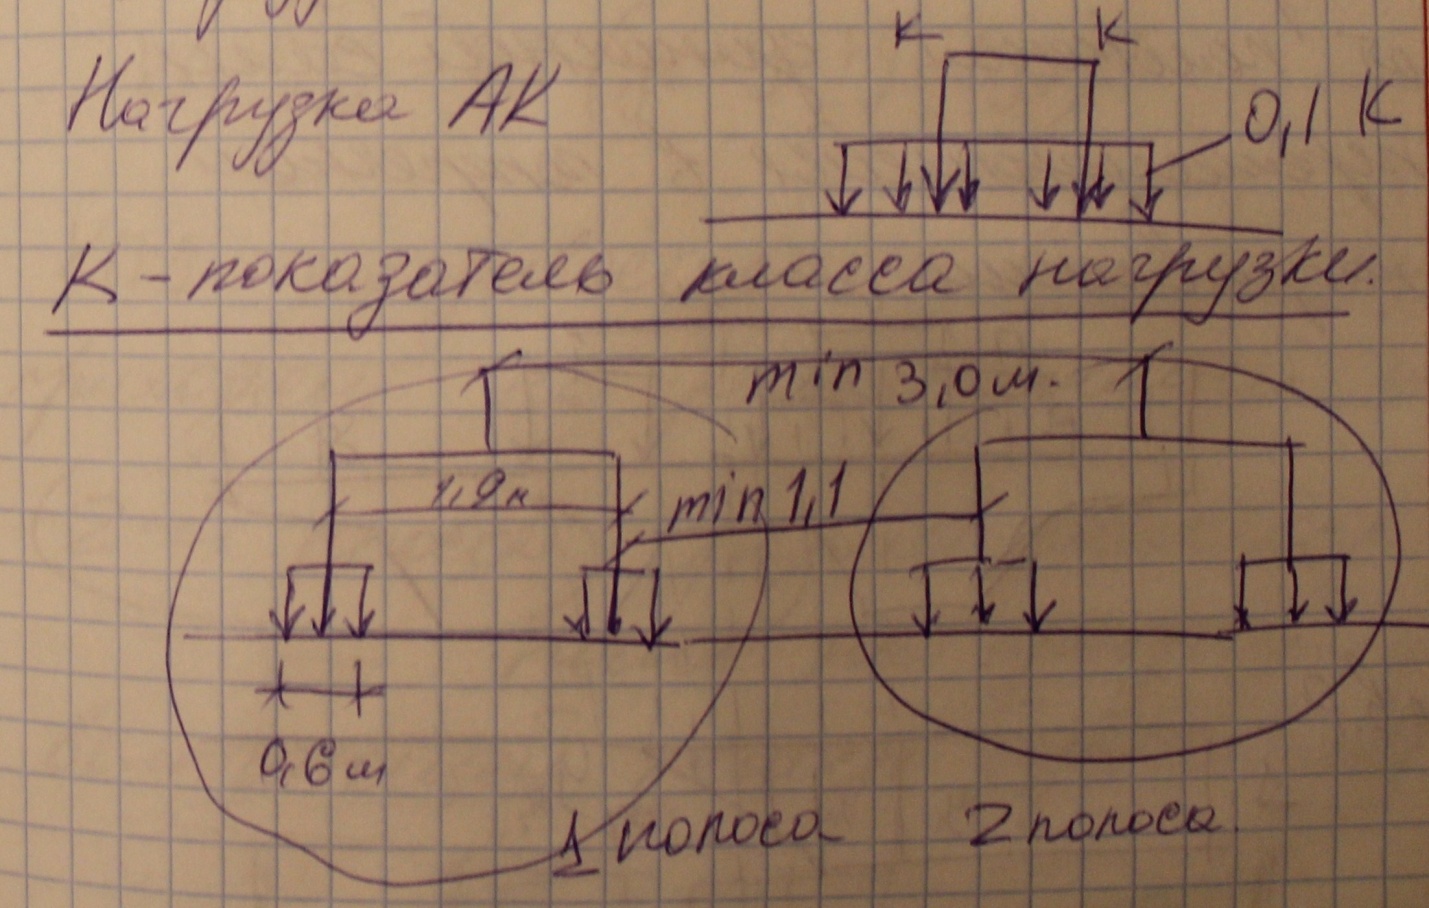 К К
Нагрузка АК
0,1 К
К - показатель класса нагрузки.
min 3,0 м.
1,9 м
min 1,1
0,6 м
1 полоса 2 полоса.